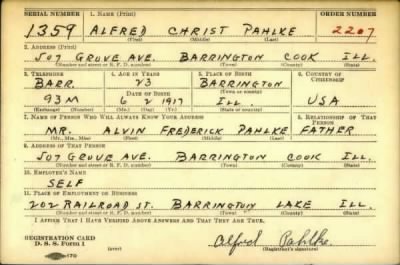 SERIAL NUMBER 1. NAME (Print) ORDER NUMBER
1359 ALFRED CHRIST PAHLKE 2207
(First) (Middle) (Last)
2. ADDRESS (Print)
507 GROVE AVE. BARRINGTON COOK ILL.
(Number and street or R. F. D. number) (Town) (County) (State)
3. TELEPHONE 4. AGE IN YEARS 5. PLACE OF BIRTH 6. COUNTRY OF CITIZENSHIP
BARR. 23 BARRINGTON
DATE OF BIRTH (Town or county)
93M 6 2 1917 ILL. USA
(Exchange) (Number) (Mo.) (Day) (Yr.) (State or country)
7. NAME OF PERSON WHO WILL ALWAYS KNOW YOUR ADDRESS 8. RELATIONSHIP OF THAT PERSON
MR. ALVIN FREDERICK PAHLKE FATHER
(Mr., Mrs., Miss) (First) (Middle) (Last)
9. ADDRESS OF THAT PERSON
507 GROVE AVE. BARRINGTON COOK ILL.
(Number and street or R. F. D. number) (Town) (County) (State)
10. EMPLOYER'S NAME
SELF
11. PLACE OF EMPLOYMENT OR BUSINESS
202 RAILROAD ST. BARRINGTON LAKE ILL
(Number and street or R. F. D. number) (Town) (County) (State)
I AFFIRM THAT I HAVE VERIFIED ABOVE ANSWERS AND THAT THEY ARE TRUE.
REGISTRATION CARD
D. S. S. Form 1 (over) Alfred Pahlke
(Registrant's signature)